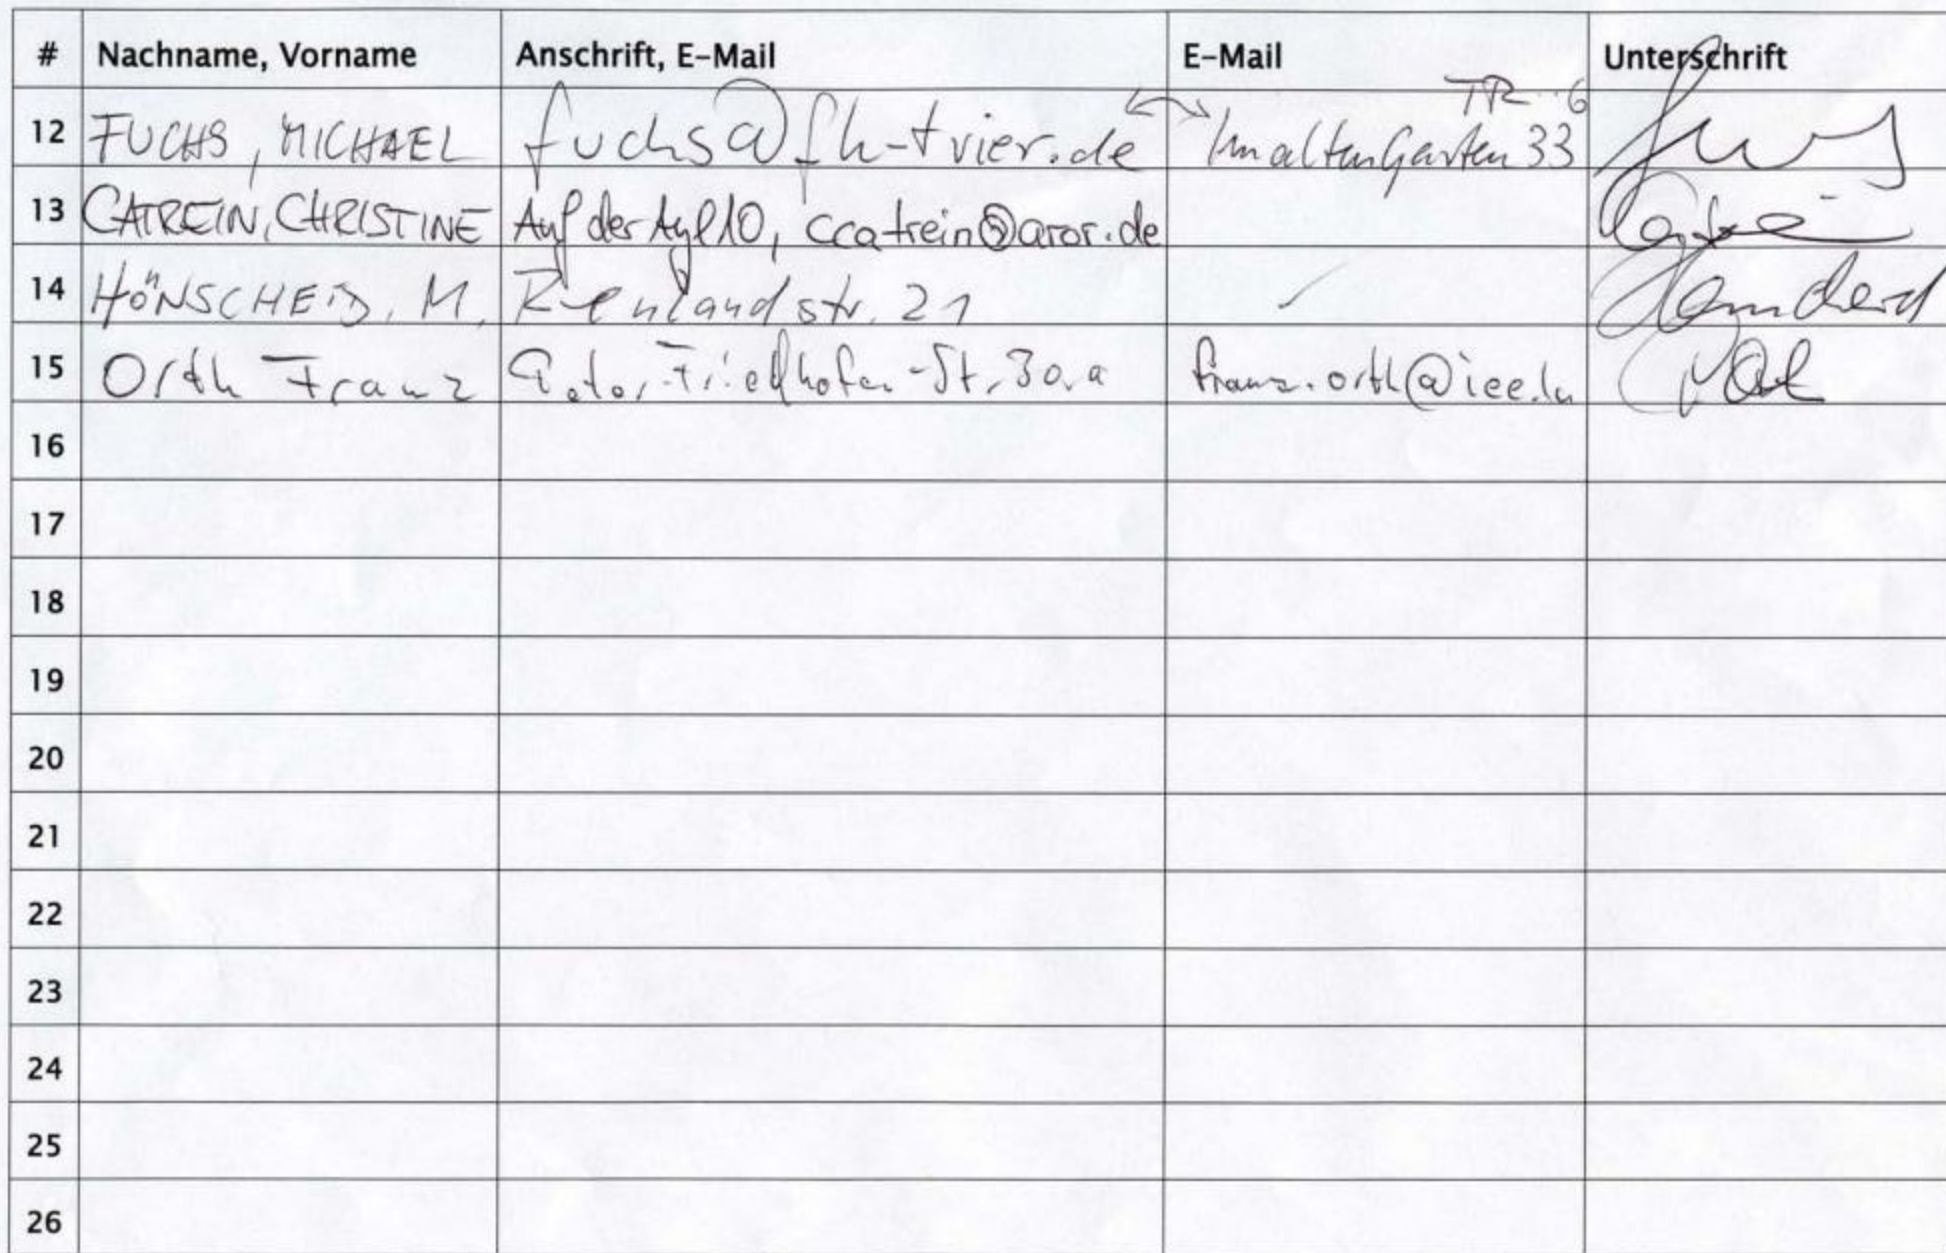 # Nachname, Vorname Anschrift, E-Mail E-Mail Unterschrift
12 FUCHS, MICHAEL fuchs@fh-trier.de ↔ Im alten Garten 33 TR-6
13 CATREIN, CHRISTINE Auf der Ayl 10, ccatrein@aror.de
14 HÖNSCHEID, M. str. 21
15 Orth Franz Friedhofen-Str. 30.a franz.orth@iee.lu
16
17
18
19
20
21
22
23
24
25
26